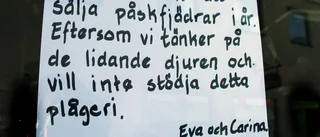 sälja påskfjädrar i år.
Eftersom vi tänker på
de lidande djuren och
vill inte stödja detta
plågeri.
Eva och Carina.